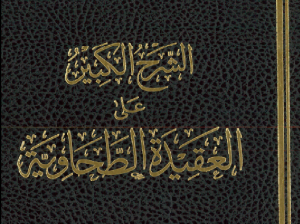 الشَّرْحُ الكَبِيْرُ
عَلَى
العَقِيْدَةِ الطَّحَاوِيَّةِ